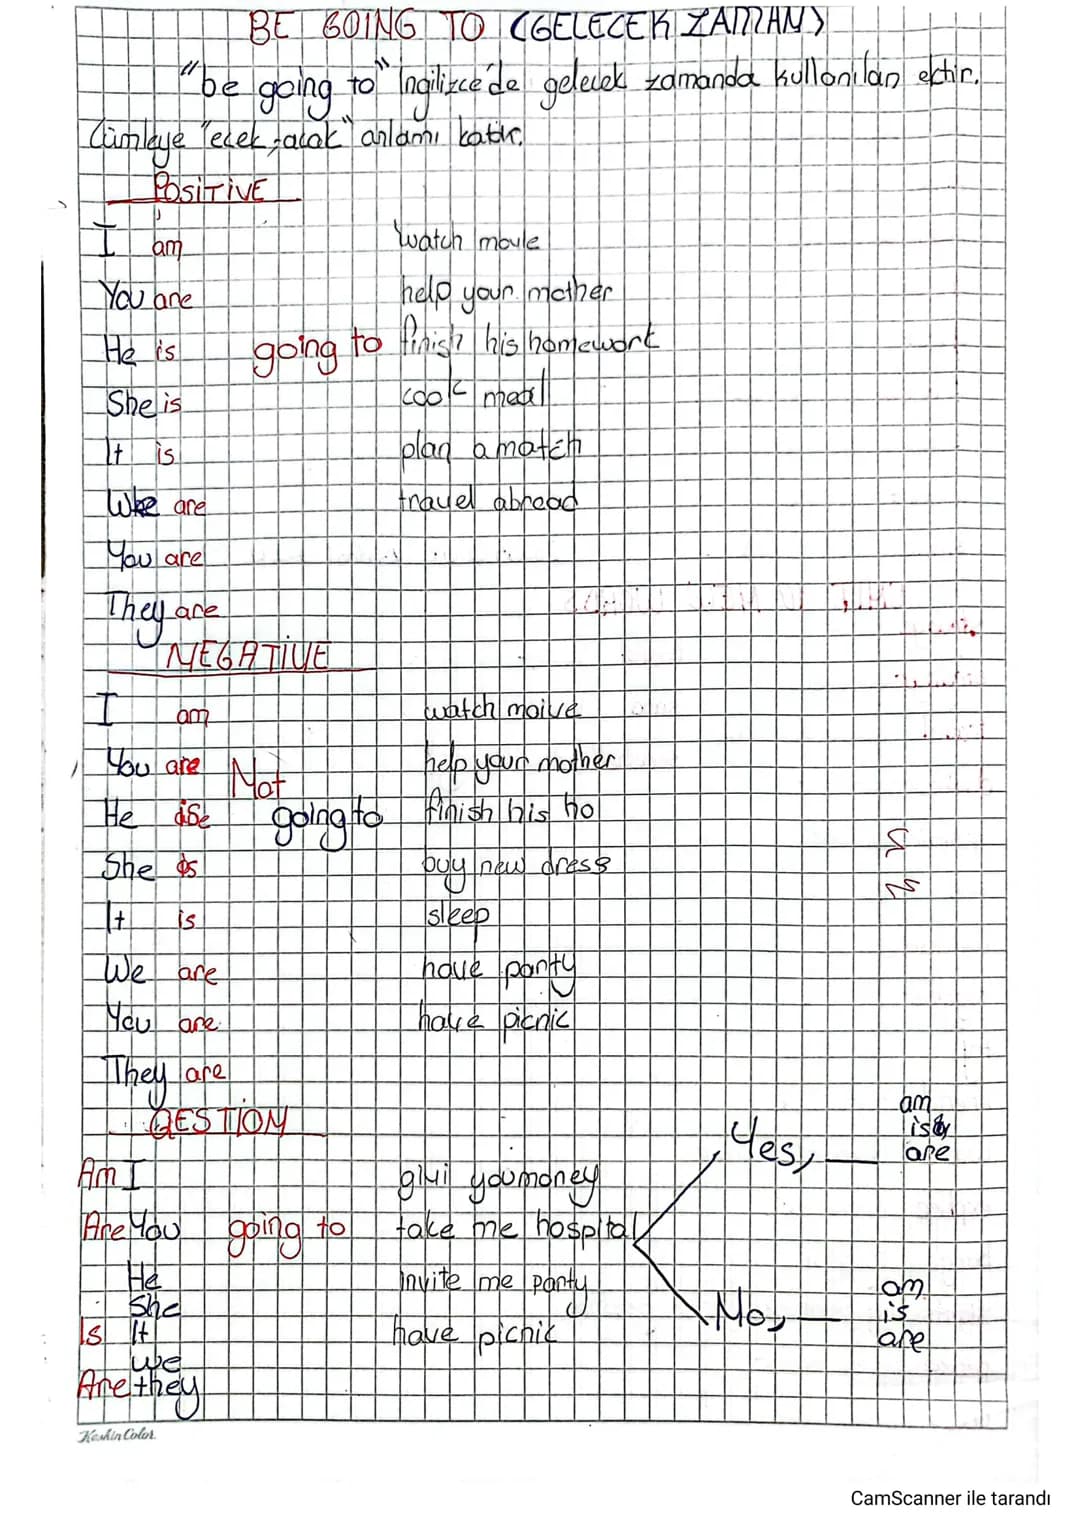 BE GOING TO (GELECEK ZAMAN)
"be going to" İngilizce'de gelecek zamanda kullanılan ektir.
Cümleye "ecek, acak" anlamı katar.
POSİTİVE
I am watch movie
You are help your mother
He is going to finish his homework
She is cook meal
It is plan a match
We are travel abroad
You are
They are
NEGATİVE
I am watch moive
You are Not help your mother
He is going to finish his ho
She is buy new dress
It is sleep
We are have party
You are have picnic
They are
QESTİON
Am I givi you money
Are You going to take me hospital
He invite me party
She
Is It have picnic
we
Are they
Yes, ___ am
is
are
No, ___ am
is
are
KeskinColor
CamScanner ile tarandı